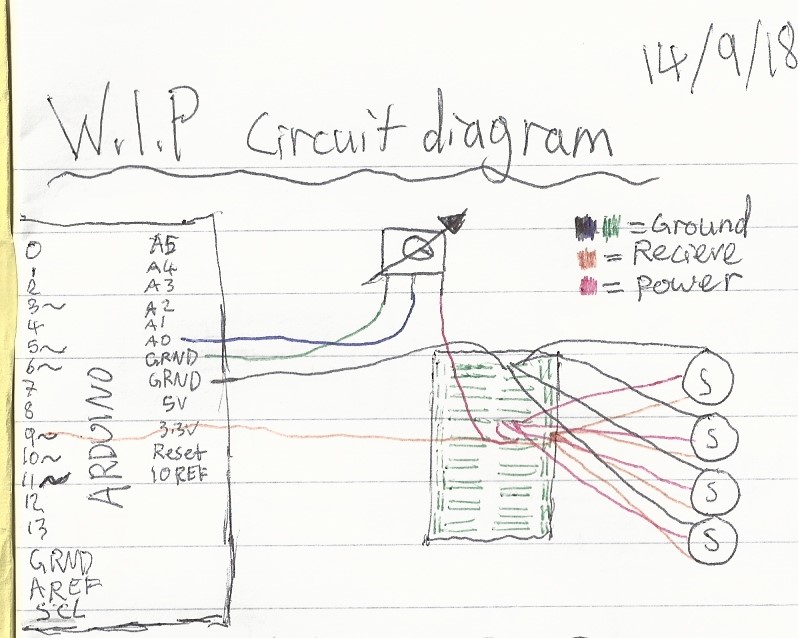 14/9/18
W.I.P Circuit diagram
= Ground
= Recieve
= Power
0
1
2
3~
4
5~
6~
7
8
9~
10~
11~
12
13
GRND
AREF
SCL
ARDUINO
A5
A4
A3
A2
A1
A0
GRND
GRND
5V
3.3V
Reset
IOREF
S
S
S
S